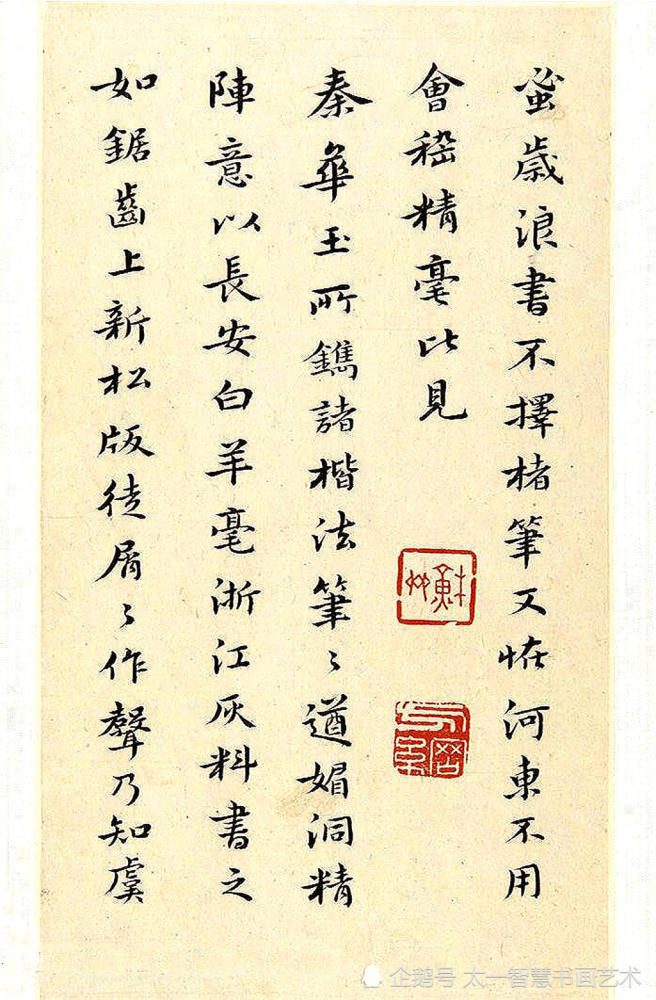 蚤歲浪書不擇楮筆又恠河東不用
會稽精毫比見
秦華玉所鐫諸楷法筆〻遒媚洞精
陣意以長安白羊毫浙江灰料書之
如鋸齒上新松版徒屑〻作聲乃知虞
企鹅号 太一智慧书画艺术